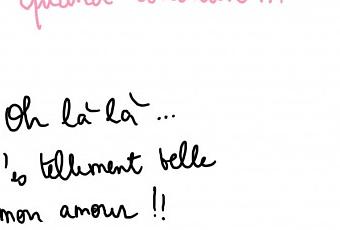 Oh là là...
'es tellement belle
mon amour !!